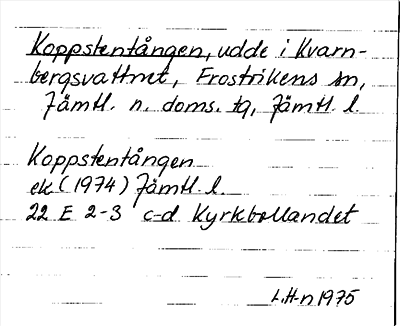 Koppstentången, udde i Kvarn-
bergsvattnet, Frostvikens sn,
Jämtl. n. doms. tg, Jämtl. l.
Koppstentången
ek (1974) Jämtl. l.
22 E 2-3 c-d Kyrkbollandet
L.H-n 1975